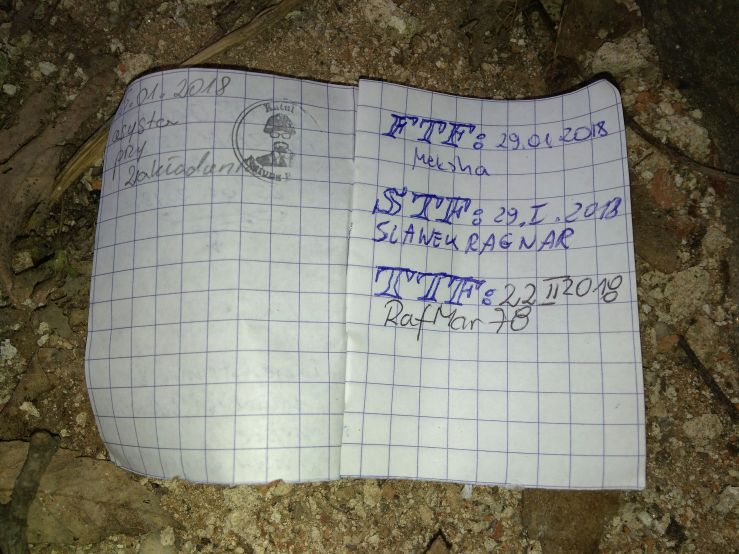 .01.2018
asysta
przy
Zakładan
FTF: 29.01.2018
STF: 29.I.2018
SLAWEK RAGNAR
TTF: 22 II 2018
RafMar 78